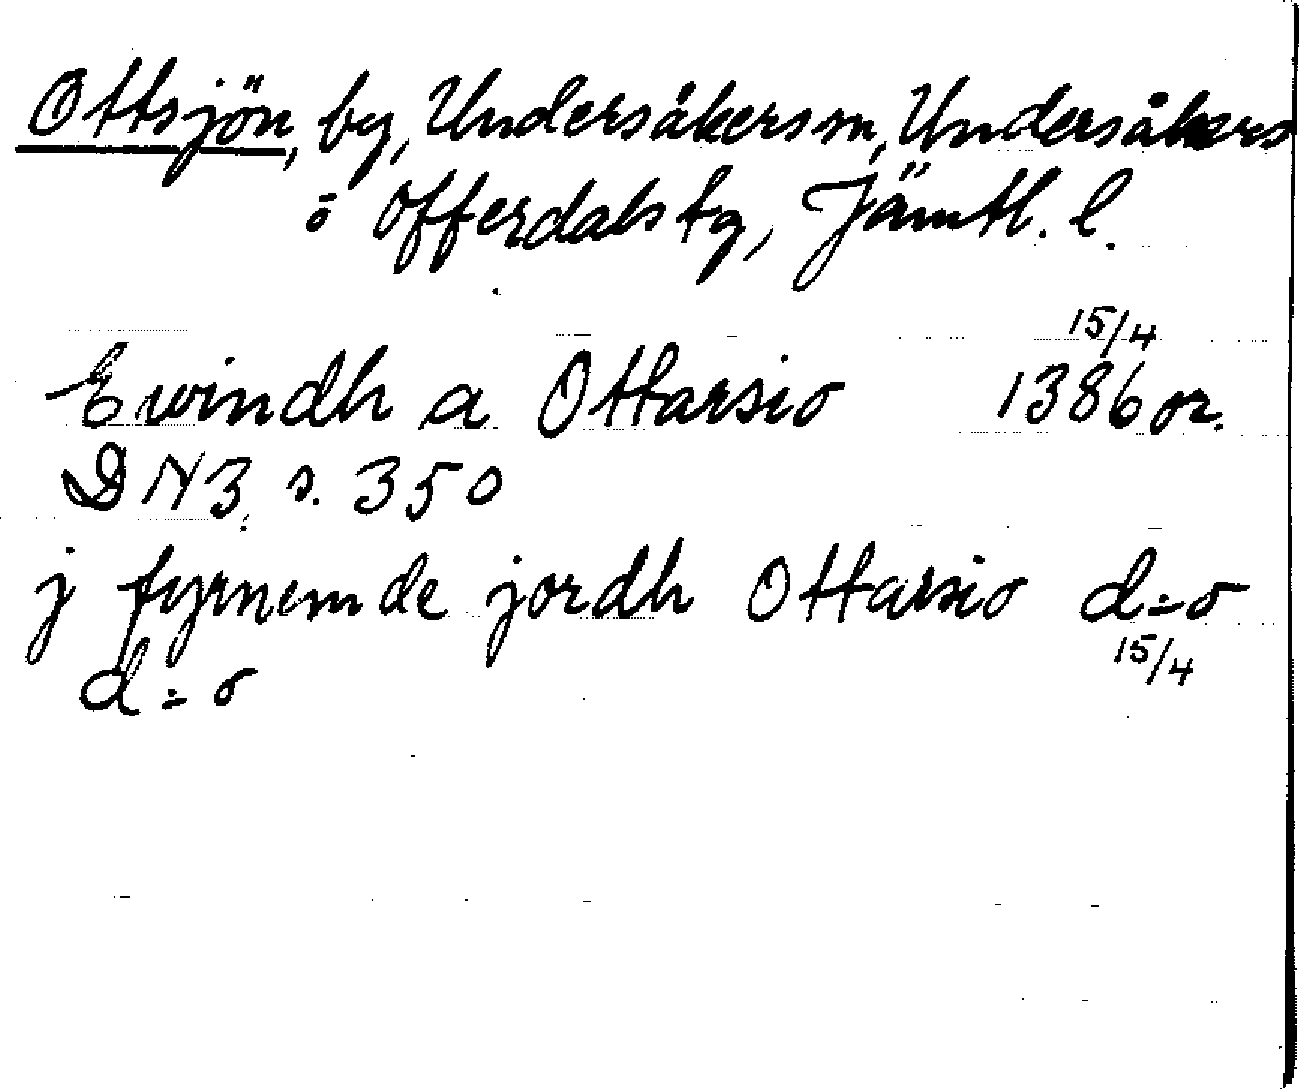 Ottsjön, by, Undersåkers sn, Undersåkers
o Offerdals tg, Jämtl. l.
15/4
Ewindh a Ottarsio 1386 or.
DN3 s. 350
j fyrnemde jordh Ottarsio d:o
15/4
d:o